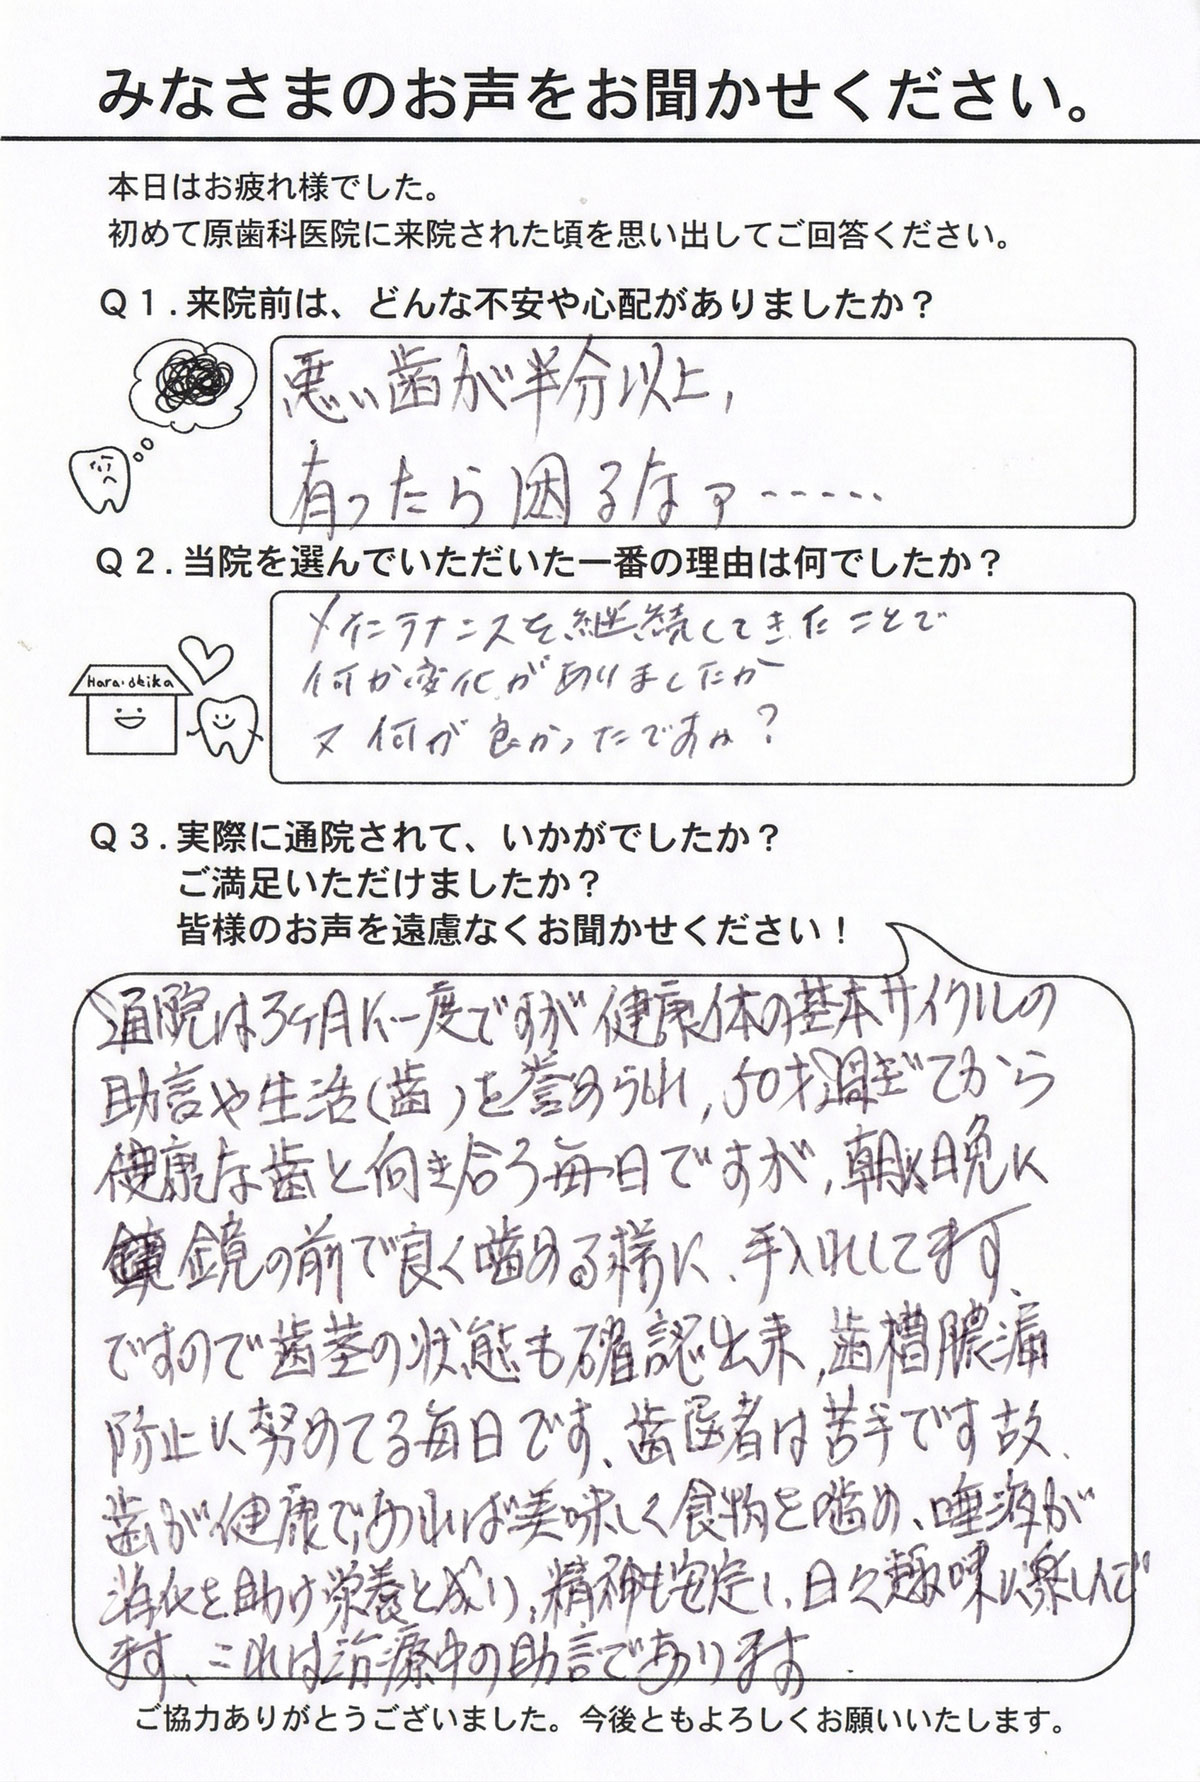 みなさまのお声をお聞かせください。
本日はお疲れ様でした。
初めて原歯科医院に来院された頃を思い出してご回答ください。
Q1.来院前は、どんな不安や心配がありましたか？
悪い歯が半分以上,
有ったら困るなァ-----
Q2.当院を選んでいただいた一番の理由は何でしたか？
メインテナンスを継続してきたことで
何か変化がありましたか
又何が良かったですか?
Hara・shika
Q3.実際に通院されて、いかがでしたか？
ご満足いただけましたか？
皆様のお声を遠慮なくお聞かせください！
通院は3ヶ月に一度ですが健康体の基本サイクルの
助言や生活(歯)を誉められ,50才過ぎてから
健康な歯と向き合う毎日ですが,朝に晩に
鏡の前で良く噛める様に、手入れしてます
ですので歯茎の状態も確認出来,歯槽膿漏
防止に努めてる毎日です、歯医者は苦手です故、
歯が健康であれば美味しく食物を噛め、唾液が
消化を助け栄養と成り,精神も安定し,日々趣味に楽しんで
ます、これは治療中の助言であります
ご協力ありがとうございました。今後ともよろしくお願いいたします。